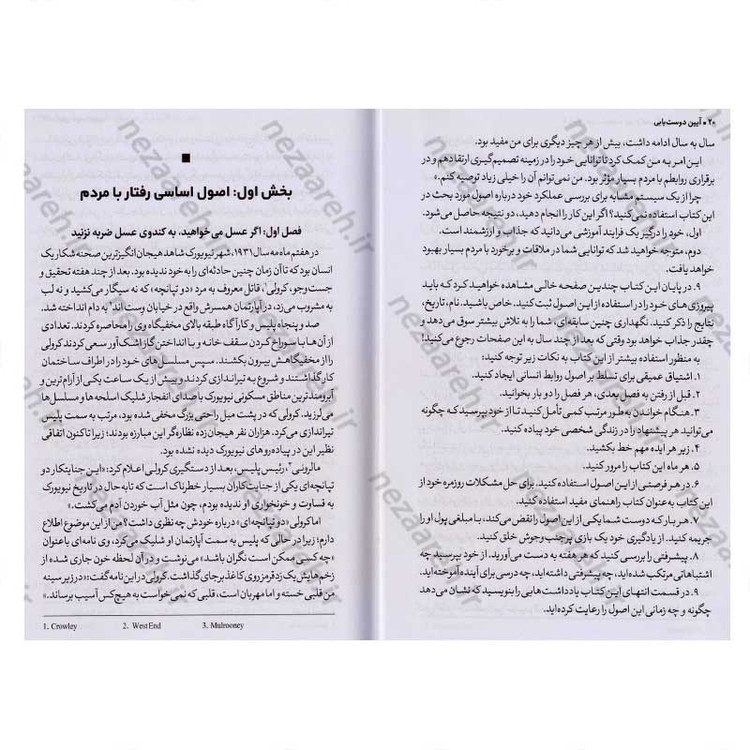 ۲۰ ● آیین دوست‌یابی
سال به سال ادامه داشت، بیش از هر چیز دیگری برای من مفید بود.
این امر به من کمک کرد تا توانایی خود را در زمینه تصمیم‌گیری ارتقا دهم و در
برقراری روابطم با مردم بسیار مؤثر بود. من نمی‌توانم آن را خیلی زیاد توصیه کنم.»
چرا از یک سیستم مشابه برای بررسی عملکرد خود درباره اصول مورد بحث در
این کتاب استفاده نمی‌کنید؟ اگر این کار را انجام دهید، دو نتیجه حاصل می‌شود.
اول، خود را درگیر یک فرایند آموزشی می‌دانید که جذاب و ارزشمند است.
دوم، متوجه خواهید شد که توانایی شما در ملاقات و برخورد با مردم بسیار بهبود
خواهد یافت.
۹. در پایان این کتاب چندین صفحه خالی مشاهده خواهید کرد که باید
پیروزی‌های خود را در استفاده از این اصول ثبت کنید. خاص باشید. نام، تاریخ،
نتایج را ذکر کنید. نگهداری چنین سابقه‌ای، شما را به تلاش بیشتر سوق می‌دهد و
چقدر جذاب خواهد بود وقتی که بعد از چند سال به این صفحات رجوع می‌کنید!
به منظور استفاده بیشتر از این کتاب به نکات زیر توجه کنید:
۱. اشتیاق عمیقی برای تسلط بر اصول روابط انسانی ایجاد کنید.
۲. قبل از رفتن به فصل بعدی، هر فصل را دو بار بخوانید.
۳. هنگام خواندن به طور مرتب کمی تأمل کنید تا از خود بپرسید که چگونه
می‌توانید هر پیشنهاد را در زندگی شخصی خود پیاده کنید.
۴. زیر هر ایده مهم خط بکشید.
۵. هر ماه این کتاب را مرور کنید.
۶. در هر فرصتی از این اصول استفاده کنید. برای حل مشکلات روزمره خود از
این کتاب به عنوان کتاب راهنمای مفید استفاده کنید.
۷. هر بار که دوست شما یکی از این اصول را نقض می‌کند، با مبلغی پول او را
جریمه کنید. از یادگیری خود یک بازی پرجنب و جوش خلق کنید.
۸. پیشرفتی را بررسی کنید که هر هفته به دست می‌آورید. از خود بپرسید چه
اشتباهاتی مرتکب شده‌اید، چه پیشرفتی داشته‌اید، چه درسی برای آینده آموخته‌اید.
۹. در قسمت انتهای این کتاب یادداشت‌هایی را بنویسید که نشان می‌دهد
چگونه و چه زمانی این اصول را رعایت کرده‌اید.
بخش اول: اصول اساسی رفتار با مردم
فصل اول: اگر عسل می‌خواهید، به کندوی عسل ضربه نزنید
در هفتم ماه مه سال ۱۹۳۱، شهر نیویورک شاهد هیجان‌انگیزترین صحنه شکار یک
انسان بود که تا آن زمان چنین حادثه‌ای را به خود ندیده بود. بعد از چند هفته تحقیق و
جست‌وجو، کرولی۱، قاتل معروف به مرد «دو تپانچه» که نه سیگار می‌کشید و نه لب
به مشروب می‌زد، در آپارتمان همسرش واقع در خیابان وست اند۲ به دام انداخته شد.
صد و پنجاه پلیس و کارآگاه طبقه بالای مخفیگاه وی را محاصره کردند. تعدادی
از آن‌ها با سوراخ کردن سقف خانه و با انداختن گاز اشک‌آور سعی کردند کرولی
را از مخفیگاهش بیرون بکشند. سپس مسلسل‌های خود را در اطراف ساختمان
کار گذاشتند و شروع به تیراندازی کردند و بیش از یک ساعت یکی از آرام‌ترین و
آبرومندترین مناطق مسکونی نیویورک با صدای انفجار شلیک اسلحه و مسلسل‌ها
می‌لرزید. کرولی که در پشت مبل راحتی بزرگ مخفی شده بود، مرتب به سمت پلیس
تیراندازی می‌کرد. هزاران نفر هیجان‌زده نظاره‌گر این مبارزه بودند؛ زیرا تاکنون اتفاقی
نظیر این در پیاده‌روهای نیویورک دیده نشده بود.
مالرونی۳، رئیس پلیس، بعد از دستگیری کرولی اعلام کرد: «این جنایتکار دو
تپانچه‌ای یکی از جنایت‌کاران بسیار خطرناک است که تا به حال در تاریخ نیویورک
به قساوت و خونخواری او ندیده بودم، چون مثل آب خوردن آدم می‌کشت.»
اما کرولی «دو تپانچه‌ای» درباره خودش چه نظری داشت؟ من از این موضوع اطلاع
دارم؛ زیرا در حالی که پلیس به سمت آپارتمان او شلیک می‌کرد، وی نامه‌ای با عنوان
«چه کسی ممکن است نگران باشد» می‌نوشت و در آن لحظه خون جاری شده از
زخم‌هایش یک رد قرمز روی کاغذ بر جای گذاشت. کرولی در این نامه گفت: «در زیر سینه
من قلبی خسته و اما مهربان است، قلبی که نمی‌خواست به هیچ‌کس آسیب برساند.»
1. Crowley 2. West End 3. Mulrooney
nezaareh.ir
nezaareh.ir
nezaareh.ir
nezaareh.ir
nezaareh.ir
nezaareh.ir